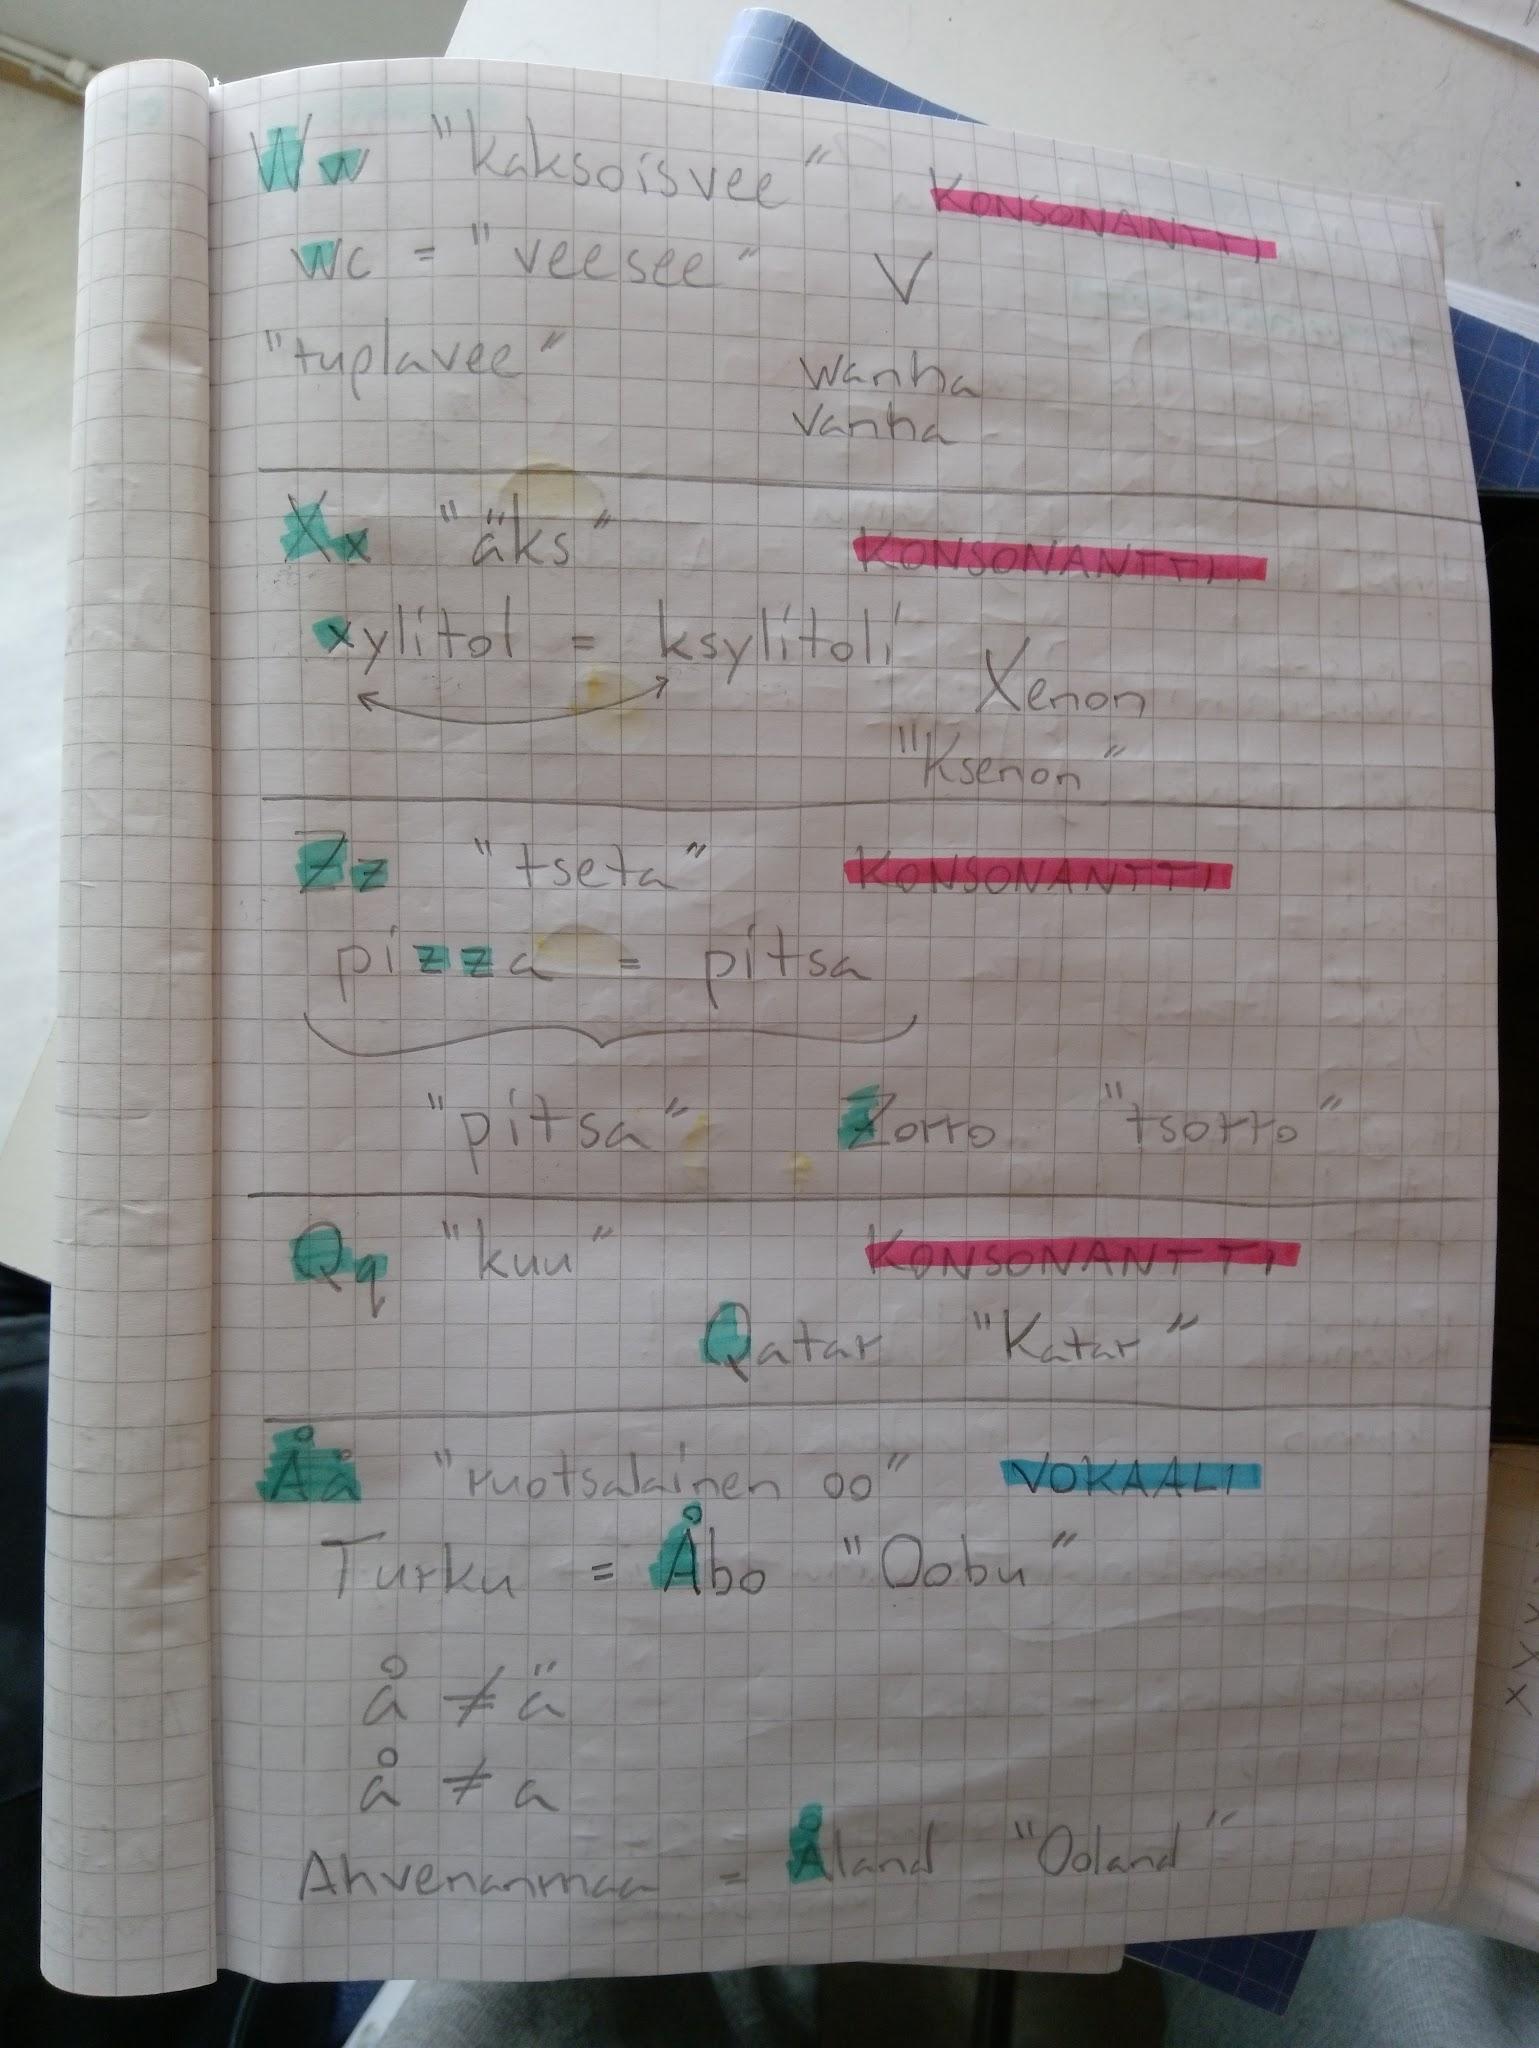 Ww "kaksoisvee" KONSONANTTI
wc = "veesee" V
"tuplavee" wanha
vanha
Xx "äks" KONSONANTTI
xylitol = ksylitoli
Xenon
"Ksenon"
Zz "tseta" KONSONANTTI
pizza = pitsa
"pitsa" Zorro "tsorro"
Qq "kuu" KONSONANTTI
Qatar "Katar"
Åå "ruotsalainen oo" VOKAALI
Turku = Åbo "Oobu"
å ≠ ä
å ≠ a
Ahvenanmaa = Åland "Ooland"